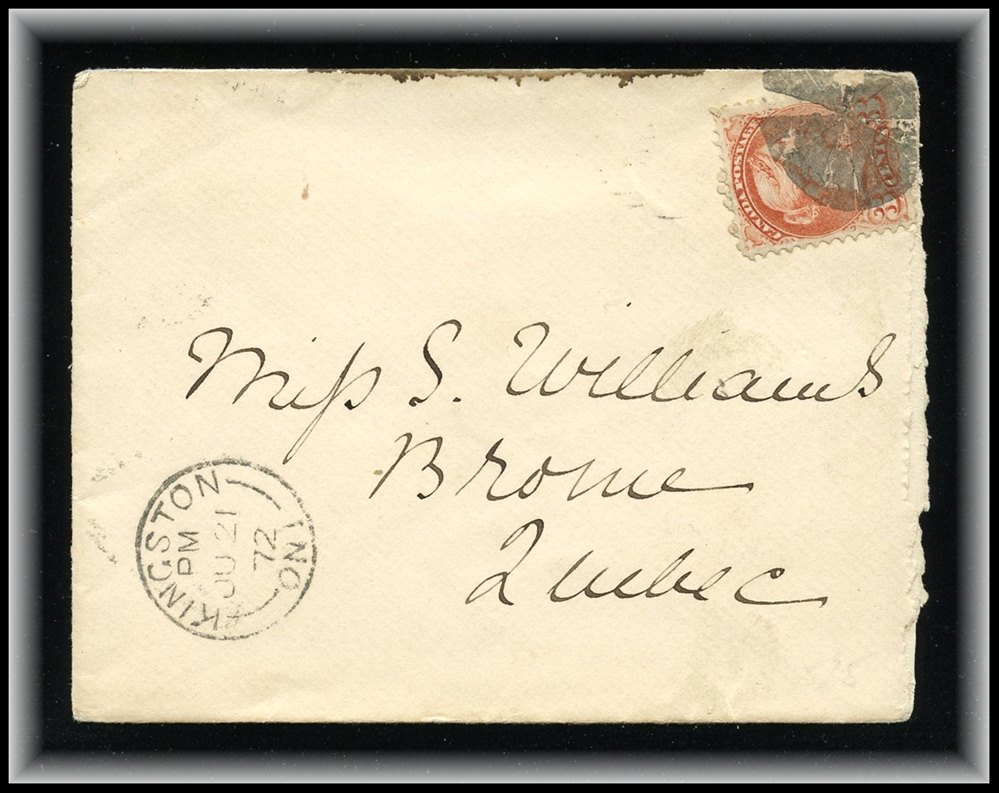 CANADA POSTAGE
3
Miss S. Williams
Brome
Quebec
KINGSTON ONT
PM
JU 21
72